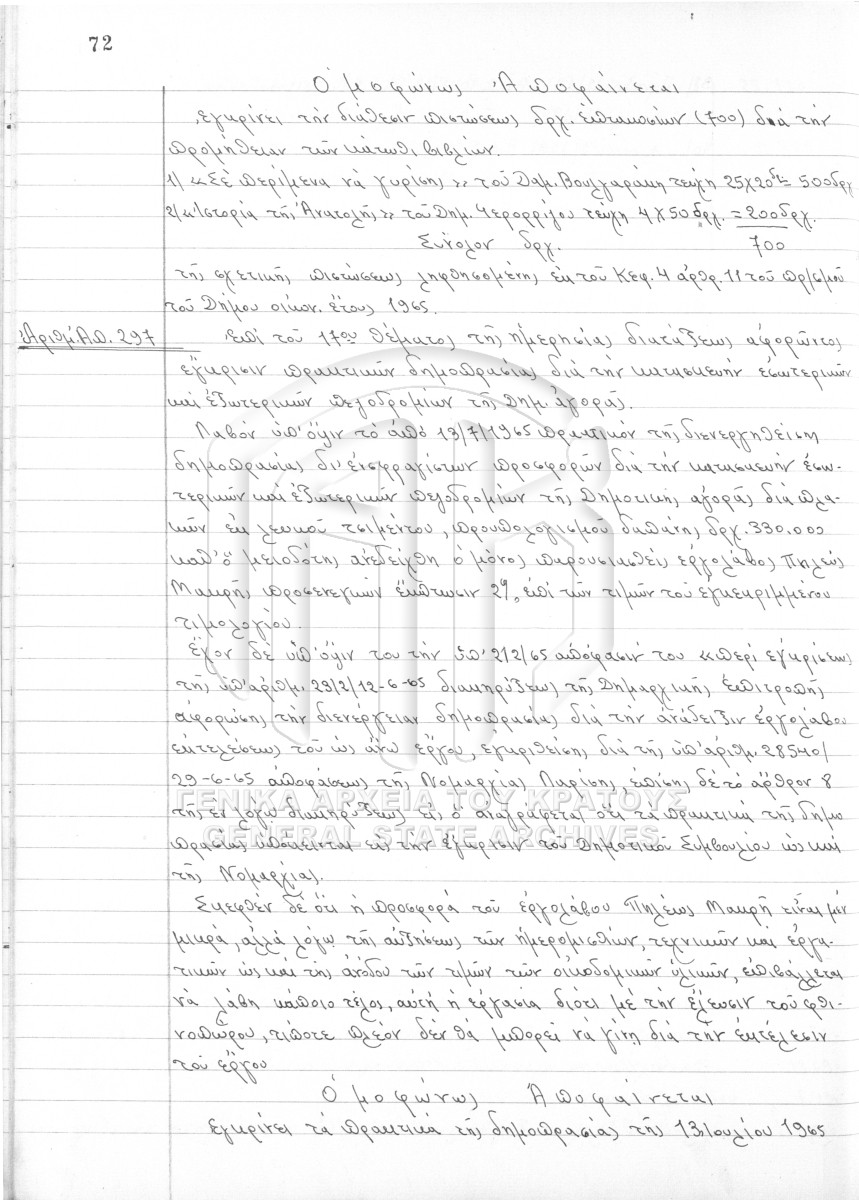 72
Ὁμοφώνως Ἀποφαίνεται
ἐγκρίνει τὴν διάθεσιν πιστώσεως δρχ. ἑπτακοσίων (700) διὰ τὴν
προμήθειαν τῶν κάτωθι βιβλίων.
1) «Σὲ περίμενα νὰ γυρίσης» τοῦ Δαμ. Βουλγαράκη τεύχη 25Χ20 δρ = 500 δρχ
2) «Ἱστορία τῆς Ἀνατολῆς» τοῦ Δημ. τεύχη 4 Χ 50 δρχ. = 200 δρχ.
Σύνολον δρχ. 700
τῆς σχετικῆς πιστώσεως ληφθησομένης ἐκ τοῦ Κεφ. 4 ἄρθρ. 11 τοῦ πρ/σμοῦ
τοῦ Δήμου οἰκον. ἔτους 1965.
Ἀριθ. Α.Π. 297
Ἐπὶ τοῦ 17ου θέματος τῆς ἡμερησίας διατάξεως ἀφορῶντος
ἔγκρισιν πρακτικῶν δημοπρασίας διὰ τὴν κατασκευὴν ἐσωτερικῶν
καὶ ἐξωτερικῶν πεζοδρομίων τῆς Δημ. ἀγορᾶς.
Λαβὸν ὑπ' ὄψιν τὸ ἀπὸ 13/7/1965 πρακτικὸν τῆς διενεργηθείσης
δημοπρασίας δι' ἐνσφραγίστων προσφορῶν διὰ τὴν κατασκευὴν ἐσω-
τερικῶν καὶ ἐξωτερικῶν πεζοδρομίων τῆς Δημοτικῆς ἀγορᾶς διὰ πλα-
κῶν ἐκ λευκοῦ τσιμέντου, προϋπολογισμοῦ δαπάνης δρχ. 330.000
καθ' ὃ μειοδότης ἀνεδείχθη ὁ μόνος παρουσιασθεὶς ἐργολάβος Πηλεὺς
Μακρῆς προσενεγκὼν ἔκπτωσιν 2% ἐπὶ τῶν τιμῶν τοῦ ἐγκεκριμμένου
τιμολογίου.
Ἔχον δὲ ὑπ' ὄψιν του τὴν ὑπ' 212/65 ἀπόφασίν του «περὶ ἐγκρίσεως
τῆς ὑπ' ἀριθμ. 23/2/12-6-65 διακηρύξεως τῆς Δημαρχιακῆς Ἐπιτροπῆς
ἀφορώσης τὴν διενέργειαν δημοπρασίας διὰ τὴν ἀνάδειξιν ἐργολάβου
ἐκτελέσεως τοῦ ὡς ἄνω ἔργου, ἐγκριθείσης διὰ τῆς ὑπ' ἀριθμ. 28540/
29-6-65 ἀποφάσεως τῆς Νομαρχίας Λαρίσης, ἐπίσης δὲ τὸ ἄρθρον 8
τῆς ἐν λόγω διακηρύξεως εἰς ὃ ἀναγράφεται ὅτι τὰ πρακτικὰ τῆς δημο
πρασίας ὑπόκεινται εἰς τὴν ἔγκρισιν τοῦ Δημοτικοῦ Συμβουλίου ὡς καὶ
τῆς Νομαρχίας.
Σκεφθὲν δὲ ὅτι ἡ προσφορὰ τοῦ ἐργολάβου Πηλέως Μακρῆ εἶναι μὲν
μικρά, ἀλλὰ λόγω τῆς αὐξήσεως τῶν ἡμερομισθίων, τεχνικῶν καὶ ἐργα-
τικῶν ὡς καὶ τῆς ἀνόδου τῶν τιμῶν τῶν οἰκοδομικῶν ὑλικῶν, ἐπιβάλλεται
νὰ λάβη κάποιο τέλος, αὐτὴ ἡ ἐργασία διότι μὲ τὴν ἔλευσιν τοῦ φθι-
νοπώρου, τίποτε πλέον δὲν θὰ μπορεῖ νὰ γίνη διὰ τὴν ἐκτέλεσιν
τοῦ ἔργου
Ὁμοφώνως Ἀποφαίνεται
Ἐγκρίνει τὰ πρακτικὰ τῆς δημοπρασίας τῆς 13 Ἰουλίου 1965
ΓΕΝΙΚΑ ΑΡΧΕΙΑ ΤΟΥ ΚΡΑΤΟΥΣ
GENERAL STATE ARCHIVES